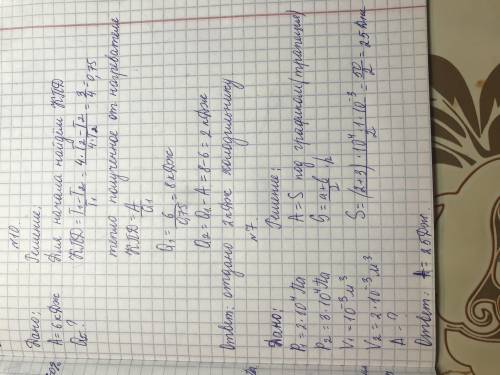 №10
Дано:
A=6кДж
Q₂-?
Решение.
Для начала найдём КПД
КПД = (T₁-T₂)/T₁ = (4·T₂-T₂)/(4·T₂) = 3/4 = 0,75
тепло полученное от нагревателя
КПД = A/Q₁
Q₁ = 6/0,75 = 8 кДж
Q₂ = Q₁ - A = 8-6 = 2 кДж
Ответ: отдано 2кДж холодильнику
№7
Дано:
P₁ = 2·10⁴ Па
P₂ = 3·10⁴ Па
V₁ = 10⁻³ м³
V₂ = 2·10⁻³ м³
A-?
Решение:
A = S под графиком (трапеция)
S = (a+b)/2 · h
S = (2+3)·10⁴·1·10⁻³/2 = 50/2 = 25 Дж
Ответ: A = 25 Дж.